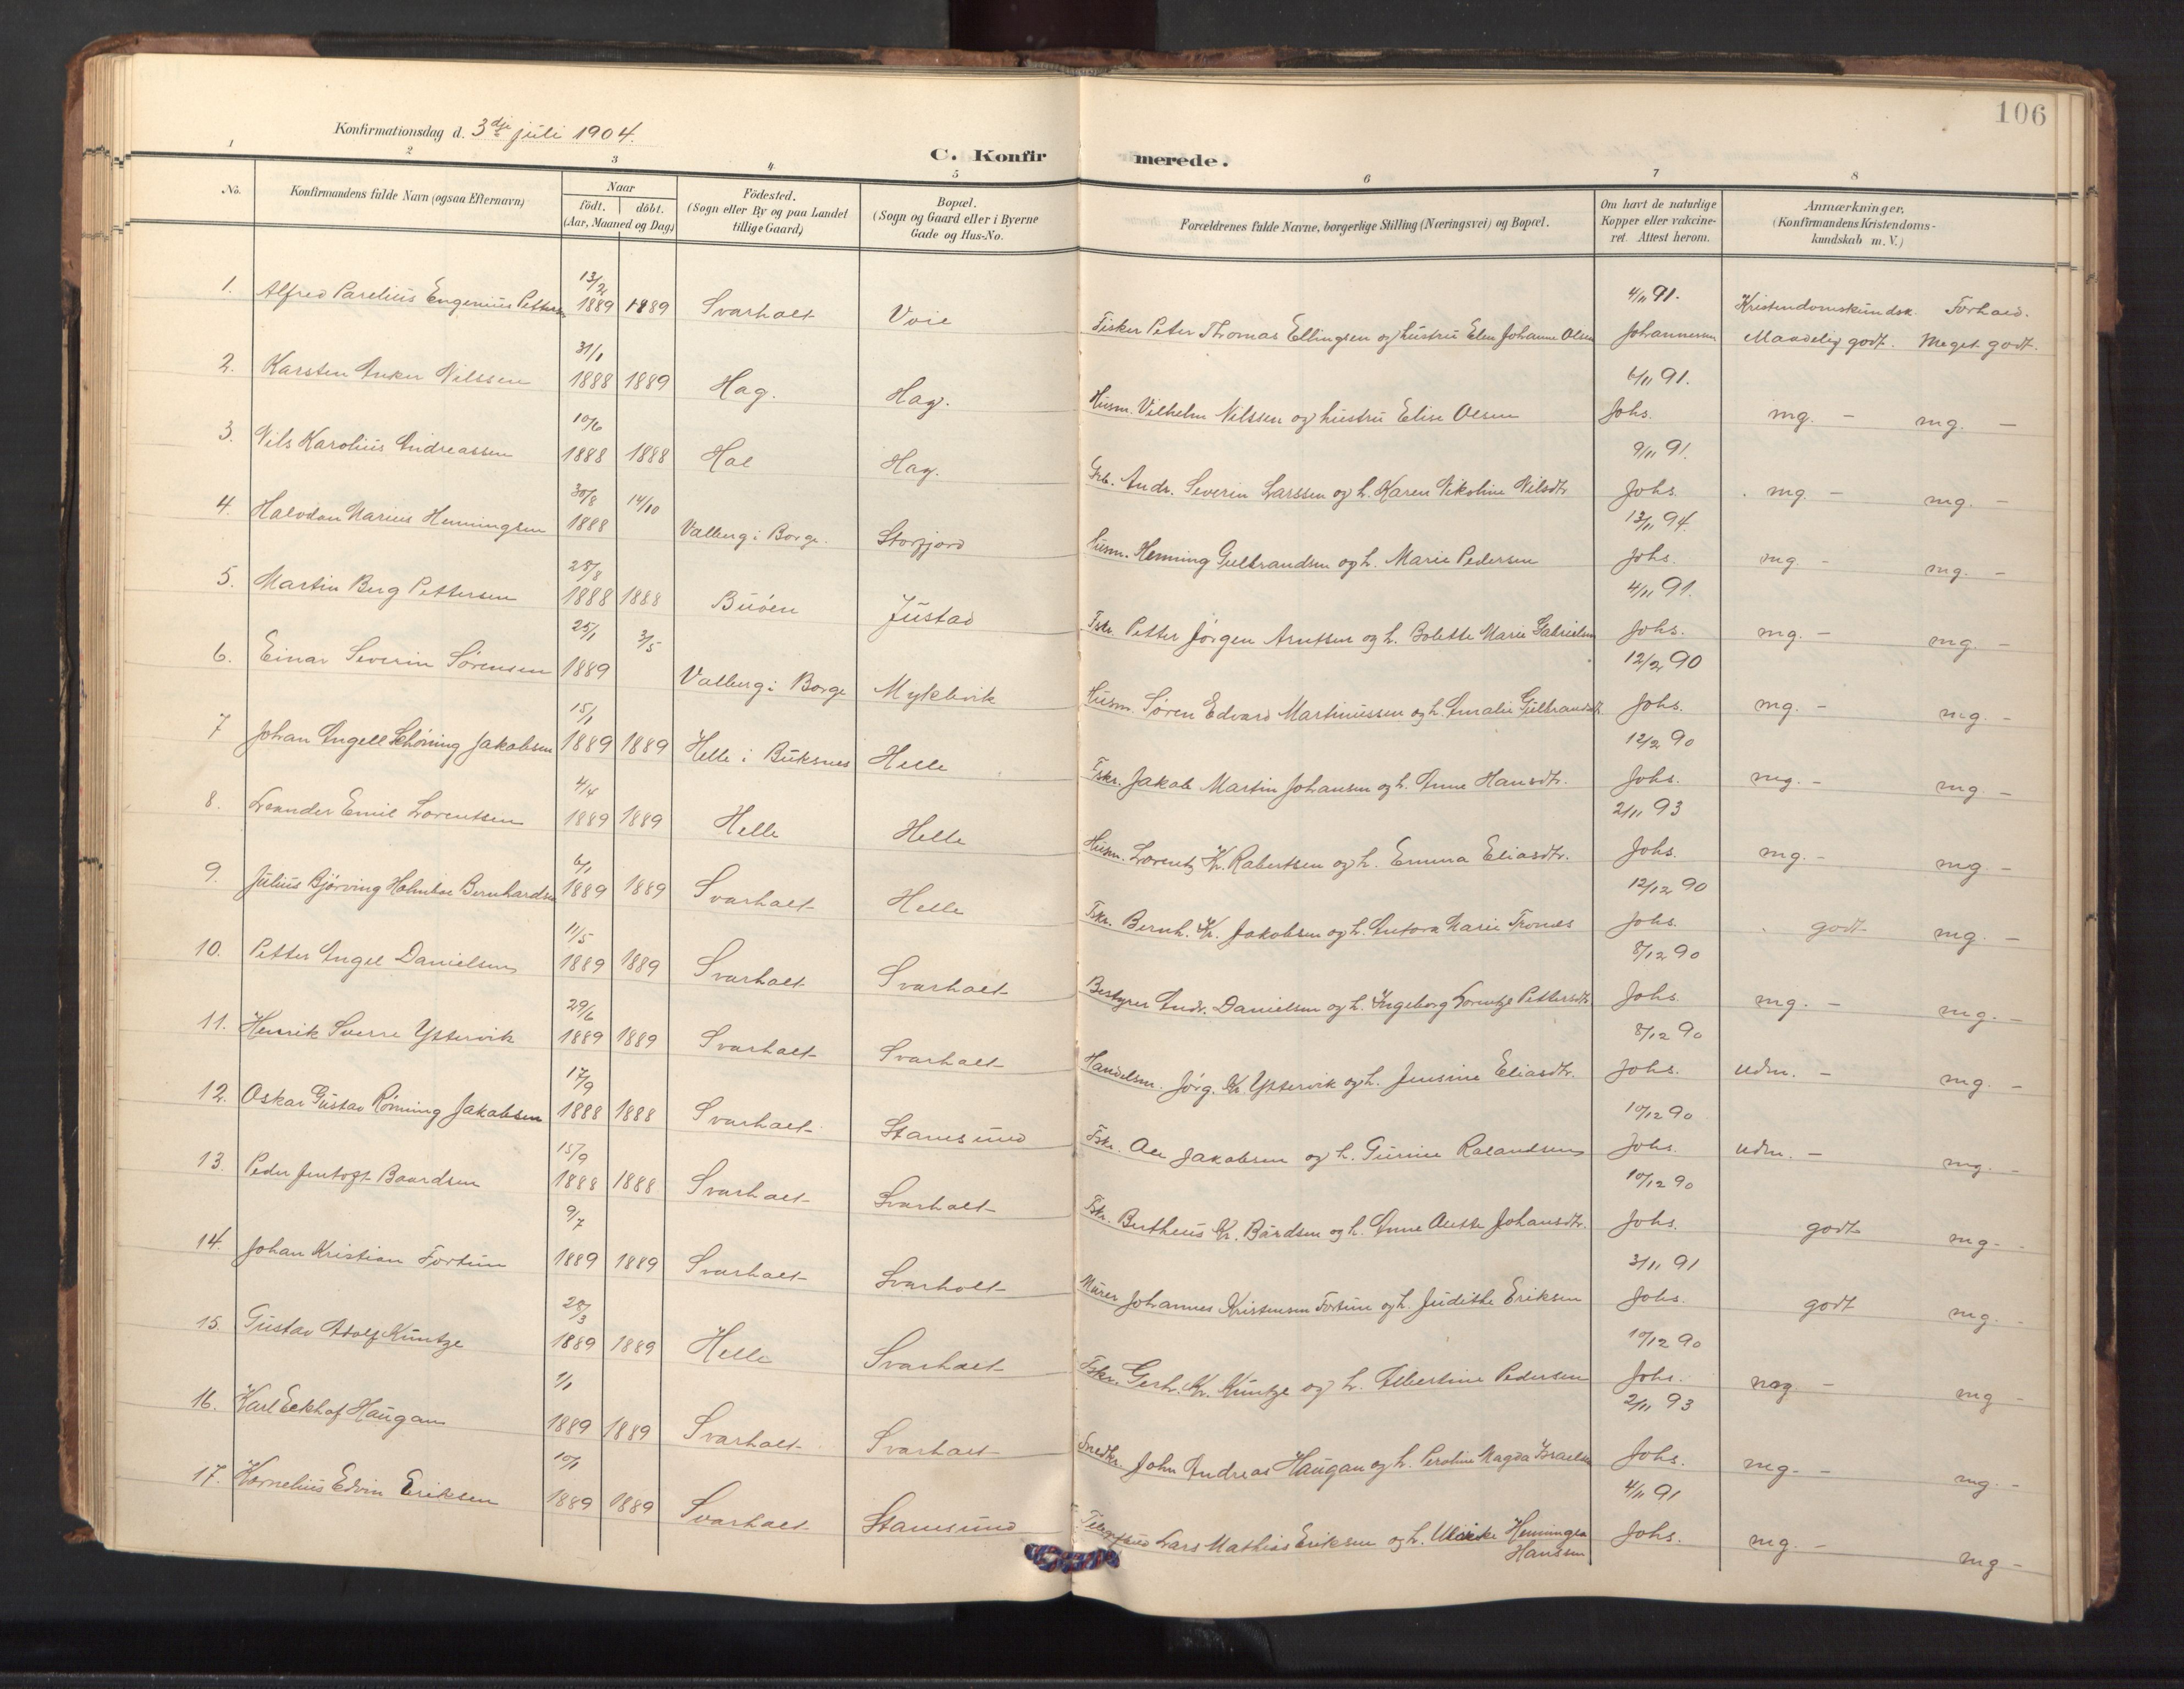 106
Konfirmationsdag d. 3die juli 1904.
C. Konfirmerede.
1 2 3 4 5 6 7 8
No. Konfirmandens fulde Navn (ogsaa Efternavn) Naar födt. döbt. (Aar, Maaned og Dag) Födested. (Sogn eller By og paa Landet tillige Gaard) Bopæl. (Sogn og Gaard eller i Byerne Gade og Hus-No. Forældrenes fulde Navne, borgerlige Stilling (Næringsvei) og Bopæl. Om havt de naturlige Kopper eller vakcineret. Attest herom. Anmærkninger. (Konfirmandens Kristendomskundskab m. V.)
1. Alfred Parelius Eugenius Pettersen 13/2 1889 1889 Svarholt Voie Fisker Peter Thomas Ellingsen og hustru Elen Johanne Olsen 4/11 91. Johannessen Kristendomskundsk. Maadelig godt. Forhold. Meget godt.
2. Karsten Anker Nilssen 31/1 1888 1889 Hag. Hag. Husm. Vilhelm Nilssen og hustru Elise Olsen 6/11 91. Johs. mg. - mg. -
3. Nils Karolius Andreassen 10/6 1888 1888 Hol Hag. Grb. Andr. Severin Larssen og h. Karen Nikoline Nilsdtr. 9/11 91. Johs. mg. - mg. -
4. Halvdan Marius Henningsen 30/8 1888 14/10 Valberg i Borge. Storfjord Husm. Henning Gulbrandsen og h. Marie Pedersen 13/11 94. Johs. mg - mg. -
5. Martin Berg Pettersen 28/8 1888 1888 Buöen Justad Fskr. Petter Jörgen Arntsen og h. Bolette Marie Gabrielsen 4/11 91. Johs. mg. - mg. -
6. Einar Severin Sörensen 25/1 1889 3/5 Valberg i Borge Myklevik Husm. Sören Edvard Martinussen og h. Amalie Gulbrandsdtr. 12/2 90 Johs. mg. - mg. -
7 Johan Angell Schöning Jakobsen 15/1 1889 1889 Helle i Buksnes Helle Fskr. Jakob Martin Johansen og h. Anne Hansdtr. 12/2 90 Johs. mg. - mg -
8. Leander Emil Lorentsen 4/4 1889 1889 Helle Helle Husm. Lorentz Kr. Robertsen og h. Emma Eliasdtr. 2/11 93 Johs. mg. - mg -
9. Julius Bjørving Holmboe Bernhardsen 6/1 1889 1889 Svarholt Helle Fskr. Bernh. Kr. Jakobsen og h. Antora Marie Trones 12/12 90 Johs. godt mg. -
10. Petter Angel Danielsen 11/5 1889 1889 Svarholt Svarholt Bestyrer Andr. Danielsen og h. Ingeborg Lorentze Pettersdtr 8/12 90 Johs. mg. - mg. -
11. Henrik Sverre Ystervik 29/6 1889 1889 Svarholt Svarholt Handelsm. Jörg. Kr. Ystervik og h. Jensine Eliasdtr. 8/12 90 Johs. udm. - mg. -
12. Oskar Gustav Rönning Jakobsen 17/9 1888 1888 Svarholt Stamsund Fskr. Ole Jakobsen og h. Gurine Rolandsen 10/12 90 Johs. udm. - mg. -
13. Peder Jentoft Baardsen 15/9 1888 1888 Svarholt Svarholt Fskr. Bertheus Kr. Bårdsen og h. Anne Johansdtr. 10/12 90 Johs. godt mg. -
14. Johan Kristian Fortun 9/7 1889 1889 Svarholt Svarholt Murer Johannes Kristensen Fortun og h. Judithe Eriksen 3/11 91 Johs. godt mg. -
15. Gustav Adolf Kuntze 28/3 1889 1889 Helle Svarholt Fskr. Gerh. Kr. Kuntze og h. Albertine Pedersen 10/12 90 Johs. mg - mg -
16. Karl Eckhof Haugan 1/1 1889 1889 Svarholt Svarholt Snedkr. John Andreas Haugan og h. Peroline Magda Israelsen 2/11 93 Johs. mg. - mg. -
17. Kornelius Edvin Eriksen 10/1 1889 1889 Svarholt Stamsund Lars Mathias Eriksen og h. Ulrikke Henningea Hanssen 4/11 91 Johs. mg. - mg -